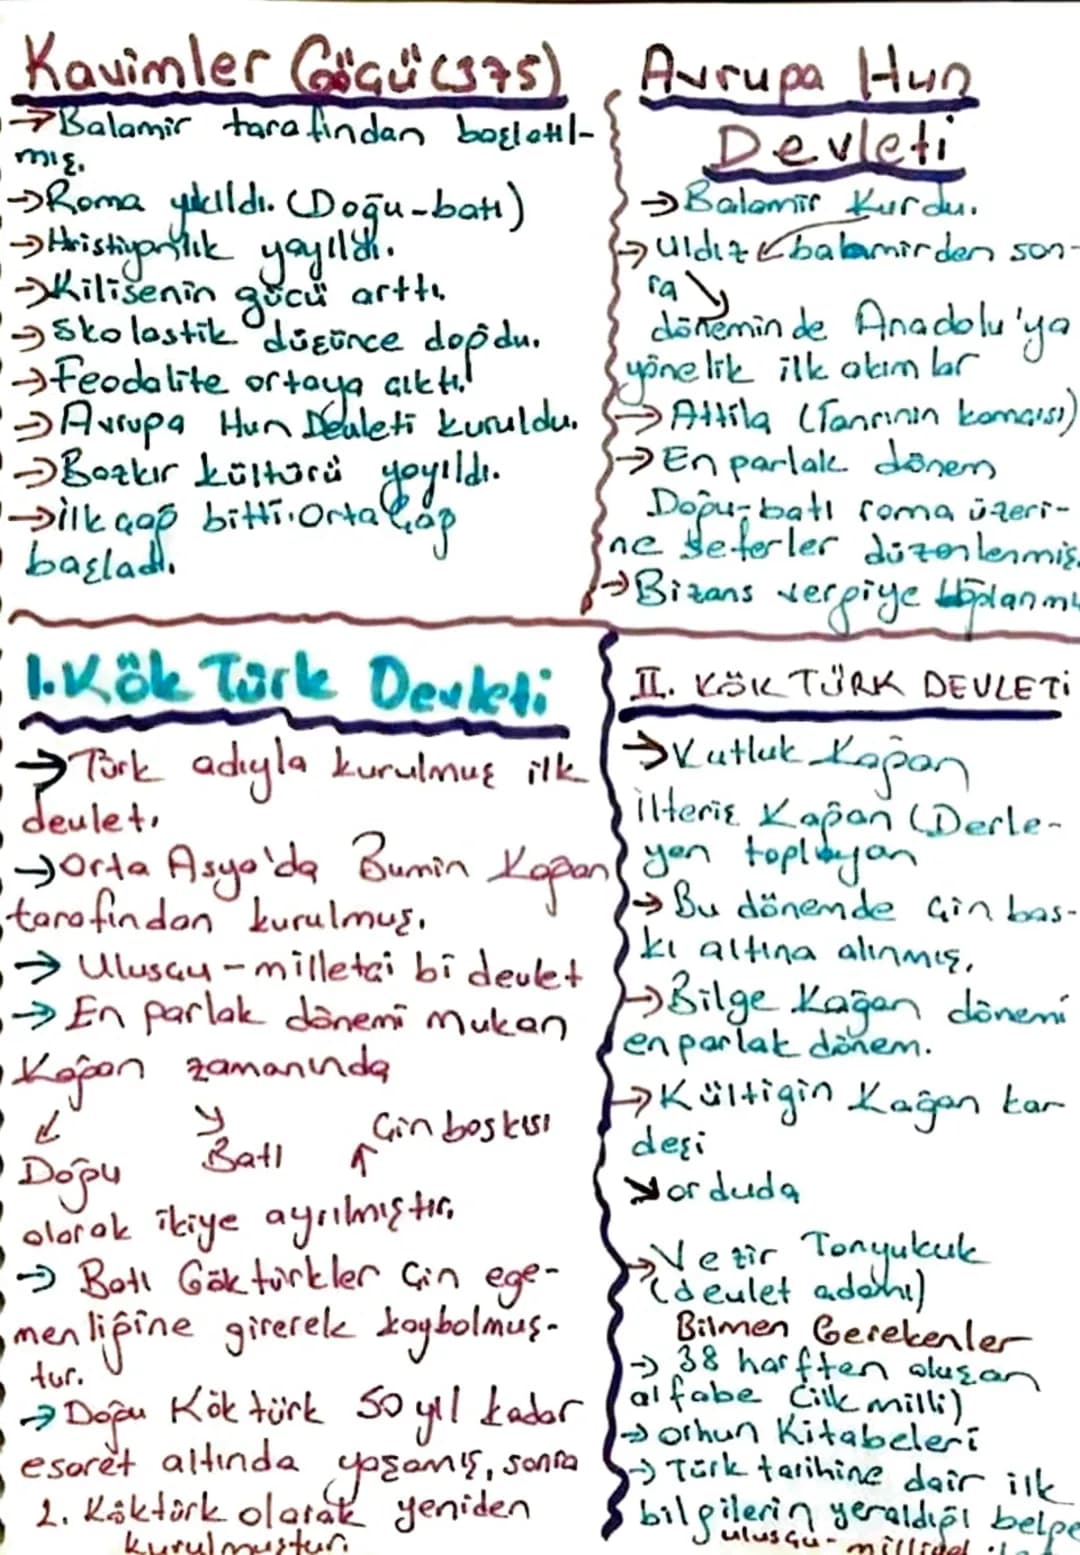 Kavimler Göçü (375)
→Balamir tarafından başlatıl-
mış.
→Roma yıkıldı. (Doğu-batı)
→Hristiyanlık yayıldı.
→Kilisenin gücü arttı.
→Skolastik düşünce doğdu.
→Feodalite ortaya çıktı.
→Avrupa Hun Devleti kuruldu.
→Bozkır kültürü yayıldı.
→İlk çağ bitti. Orta Çağ
başladı.
Avrupa Hun
Devleti
→Balamir Kurdu.
→Uldız ↙balamirden son-
ra ↘
döneminde Anadolu'ya
yönelik ilk akımlar
→Attila (Tanrının kamçısı)
→En parlak dönem
Doğu-batı roma üzeri-
ne seferler düzenlenmiş.
→Bizans vergiye
I. Kök Türk Devleti
→Türk adıyla kurulmuş ilk
devlet.
→Orta Asya'da Bumin Kağan
tarafından kurulmuş.
→Ulusçu-milletçi bi devlet
→En parlak dönemi mukan
Kağan zamanında
↙ ↘ Çin baskısı
Doğu Batı ↑
olarak ikiye ayrılmıştır.
→Batı Göktürkler Çin ege-
menliğine girerek kaybolmuş-
tur.
→Doğu Köktürk 50 yıl kadar
esaret altında yaşamış, sonra
2. Köktürk olarak yeniden
kurulmuştur.
II. KÖK TÜRK DEVLETİ
→Kutluk Kağan
İlteriş Kağan (Derle-
yen toplayan
→Bu dönemde Çin bas-
kı altına alınmış.
→Bilge Kağan dönemi
en parlak dönem.
→Kültigin Kağan kar
deşi
↘orduda
→Vezir Tonyukuk
(devlet adamı)
Bilmen Gerekenler
→38 harften oluşan
alfabe (ilk milli)
→orhun Kitabeleri
→Türk tarihine dair ilk
bilgilerin yeraldığı belge
ulusçu-